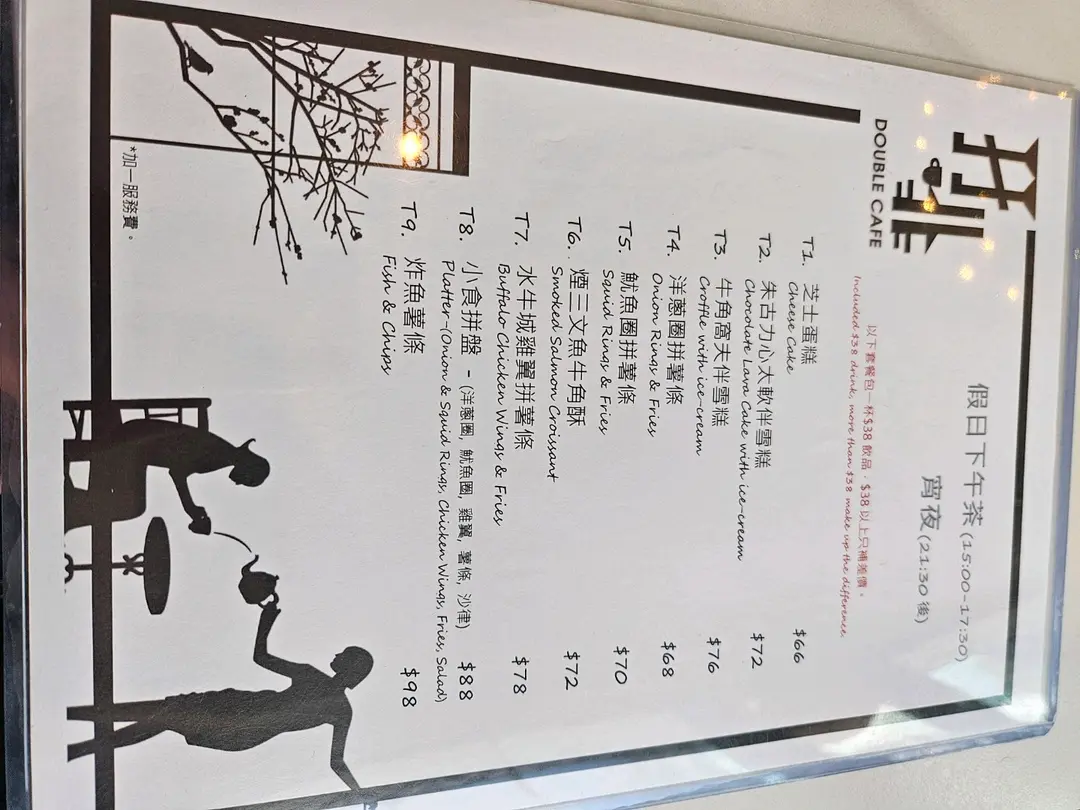 DOUBLE CAFE
假日下午茶 (15:00-17:30)
宵夜 (21:30 後)
以下套餐包一杯$38 飲品，$38 以上只補差價。
Included $38 drink, more than $38 make up the difference.
T1. 芝士蛋糕 $66
Cheese Cake
T2. 朱古力心太軟伴雪糕 $72
Chocolate Lava Cake with ice-cream
T3. 牛角窩夫伴雪糕 $76
Croffle with ice-cream
T4. 洋蔥圈拼薯條 $68
Onion Rings & Fries
T5. 魷魚圈拼薯條 $70
Squid Rings & Fries
T6. 煙三文魚牛角酥 $72
Smoked Salmon Croissant
T7. 水牛城雞翼拼薯條 $78
Buffalo Chicken Wings & Fries
T8. 小食拼盤 - (洋蔥圈, 魷魚圈, 雞翼, 薯條, 沙律) $88
Platter-(Onion & Squid Rings, Chicken Wings, Fries, Salad)
T9. 炸魚薯條 $98
Fish & Chips
*加一服務費。